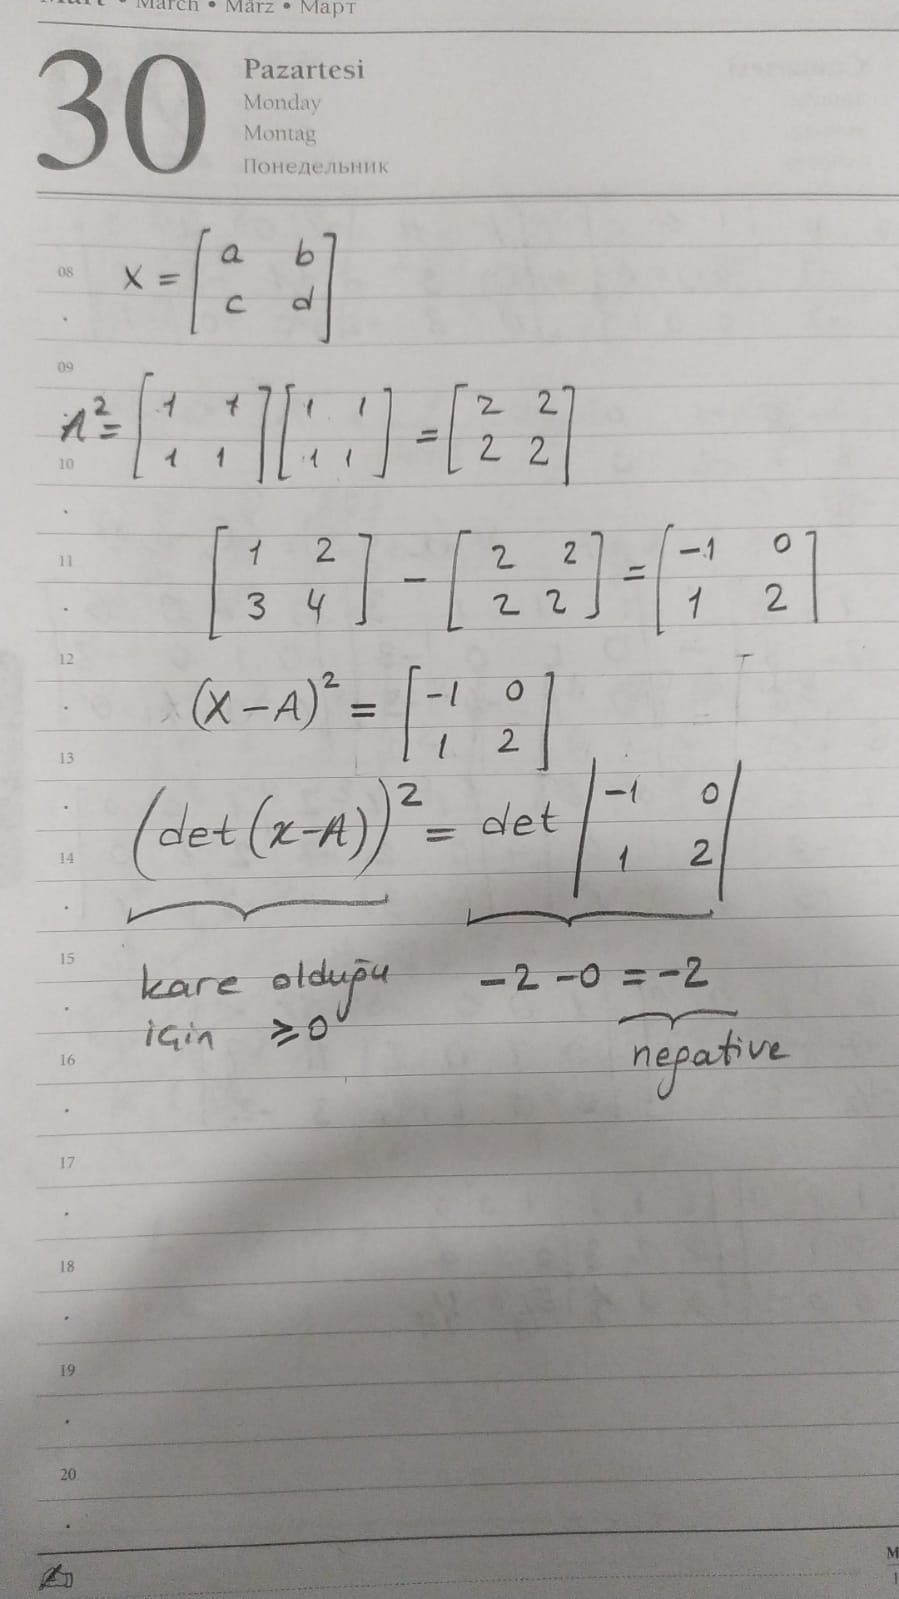 • March • März • Март
30
Pazartesi
Monday
Montag
Понедельник
08
x = [a b
c d]
09
A² = [1 1
1 1] [1 1
1 1] = [2 2
2 2]
10
11
[1 2
3 4] - [2 2
2 2] = [-1 0
1 2]
12
(X-A)² = [-1 0
1 2]
13
(det(x-A))² = det |-1 0
1 2|
14
15
kare olduğu
için ≥0
-2 -0 = -2
negative
16
17
18
19
20